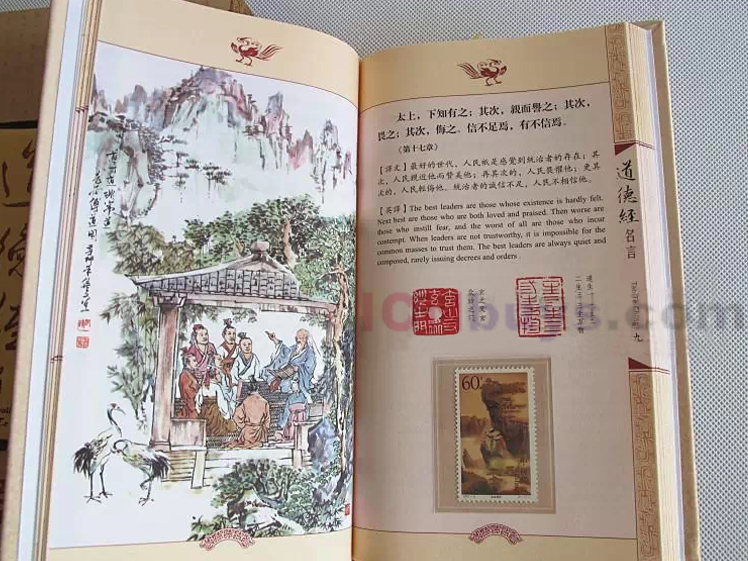 太上，下知有之；其次，親而譽之；其次，
畏之；其次，侮之。信不足焉，有不信焉。
《第十七章》
【譯文】最好的世代，人民祇是感覺到統治者的存在；其
次，人民親近他而贊美他；再其次的，人民畏懼他；更其
次的，人民輕侮他。統治者的誠信不足，人民不相信他。
【英譯】The best leaders are those whose existence is hardly felt.
Next best are those who are both loved and praised. Then worse are
those who instill fear, and the worst of all are those who incur
contempt. When leaders are not trustworthy, it is impossible for the
common masses to trust them. The best leaders are always quiet and
composed, rarely issuing decrees and orders .
道德經名言
Tao Te Ching
九
玄之又玄
衆妙之門
道生一一生二
二生三三生萬物
60
buys.com